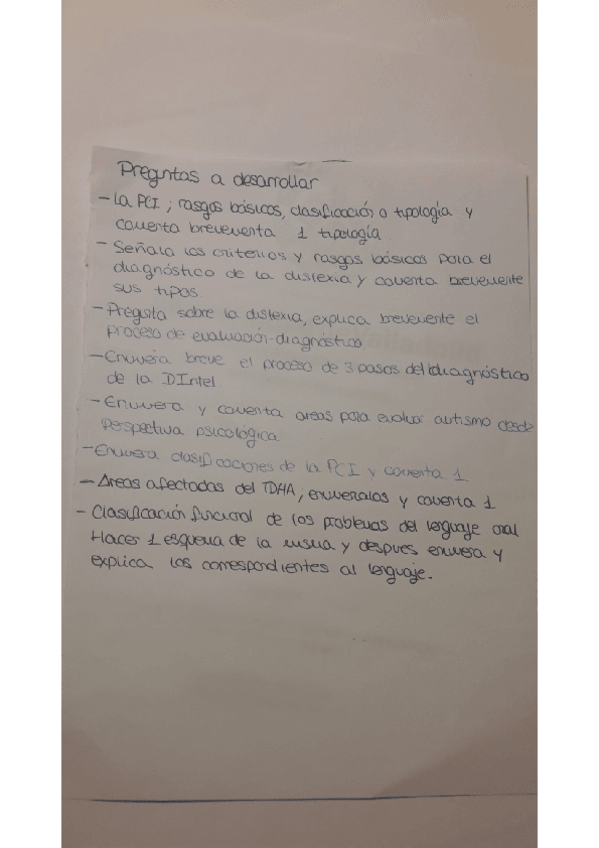 Preguntas a desarrollar
- La PCI; rasgos básicos, clasificación o tipología y
comenta brevemente 1 tipología
- Señala los criterios y rasgos básicos para el
diagnóstico de la dislexia y comenta brevemente
sus tipos.
- Pregunta sobre la dislexia, explica brevemente el
proceso de evaluación-diagnóstico
- Enumera breve el proceso de 3 pasos del diagnóstico
de la DIntel
- Enumera y comenta areas para evaluar autismo desde
perspectiva psicológica.
- Enumera clasificaciones de la PCI y comenta 1.
- Areas afectadas del TDHA, enumeralas y comenta 1
- Clasificación funcional de los problemas del lenguaje oral
Hacer 1 esquema de la misma y despues enumera y
explica los correspondientes al lenguaje.